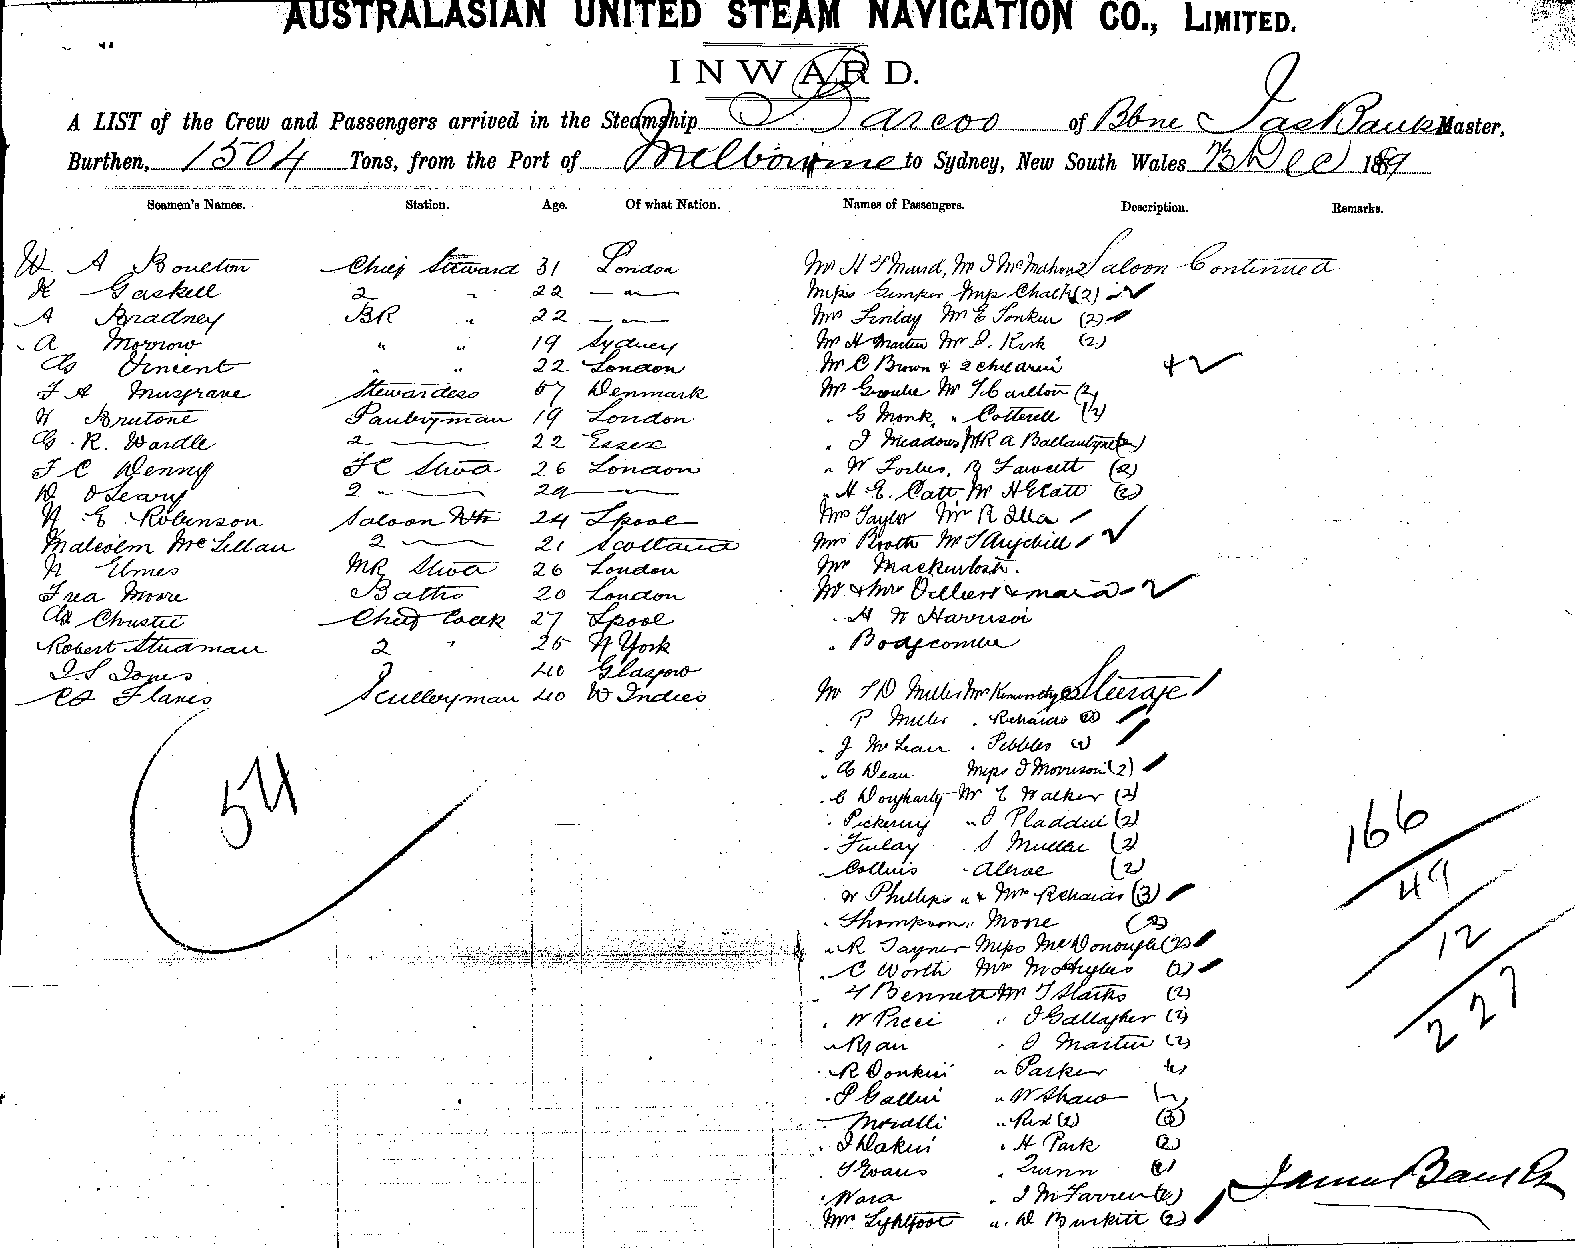 AUSTRALASIAN UNITED STEAM NAVIGATION CO., LIMITED.
INWARD.
A LIST of the Crew and Passengers arrived in the Steamship Barcoo of Bbne Jas Banks Master,
Burthen, 1504 Tons, from the Port of Melbourne to Sydney, New South Wales Dec 1889
Seamen's Names. Station. Age. Of what Nation. Names of Passengers. Description. Remarks.
W A Boulton Chief Steward 31 London
K Gaskell 2 " 22 — " —
A Bradney BR " 22 — " —
A Morrow " " 19 Sydney
Vincent " " 22 London
F A Musgrave Stewardess 57 Denmark
H Brutone Pantryman 19 London
G R. Wardle 2 — 22 Essex
F C Denny FC Stwd 26 London
D O'Leary 2 — 29 — " —
H E Robinson Saloon Wtr 24 Lpool
Malcolm McLillan 2 — 21 Scotland
H Elmes MR Stwd 26 London
Fred Moore Baths 20 London
Chas Christie Chief Cook 27 Lpool
Robert Studman 2 " 25 N York
J. S Jones 3 40 Glasgow
Flanis Scullery man 40 W Indies
54
Mr H Maud, Mr J McMahon 2 Saloon Continued
Miss Gimper Miss Chalk (2)
Mrs Finlay Mr E Tonkin (2)
Mr H Martin Mr D. Kirk (2)
Mr C Brown & 2 children 42
Mr Goulie Mr T Carlton (2)
" G Monk, " Cotterell (2)
" J Meadows Mr R A Ballantyne (2)
" W Forbes, B Fawcett (2)
" H E. Catt, Mr H E Catt (2)
Mrs Taylor Mr R Illa
Mrs Booth Mr T Aughill
Mr Mackintosh.
Mr & Mrs Villiers & maid
" H W Harrison
" Bodgcombe
Mr T D Miller Mr Kennedy 2 Steerage
" P Miller " Richards (2)
" J McLean " Pebbles (2)
" G Dean Miss J Morrison (2)
" C Dougharty Mr E Walker (2)
" Pickering " J Pladdie (2)
" Finlay " S Muller (2)
" Collins " Alcroe (2)
" W Phillips " & Mrs Richards (3)
" Thompson " Moore (2)
" R Tayner Miss McDonough (2)
" C Worth Mr McHughes (2)
" Bennett Mr T Starks (2)
" W Price " J Gallagher (2)
" Ryan " J Martin (2)
" R Donkin " Parker (2)
" P Gallin " W Shaw
" Moralli " Reid (2) (3)
" J Dakin " H Park (2)
" T Evans " Quinn (2)
" Ward " J McFarren (2)
Mrs Lightfoot " D Burkett (2)
166
49
12
227
James Banks